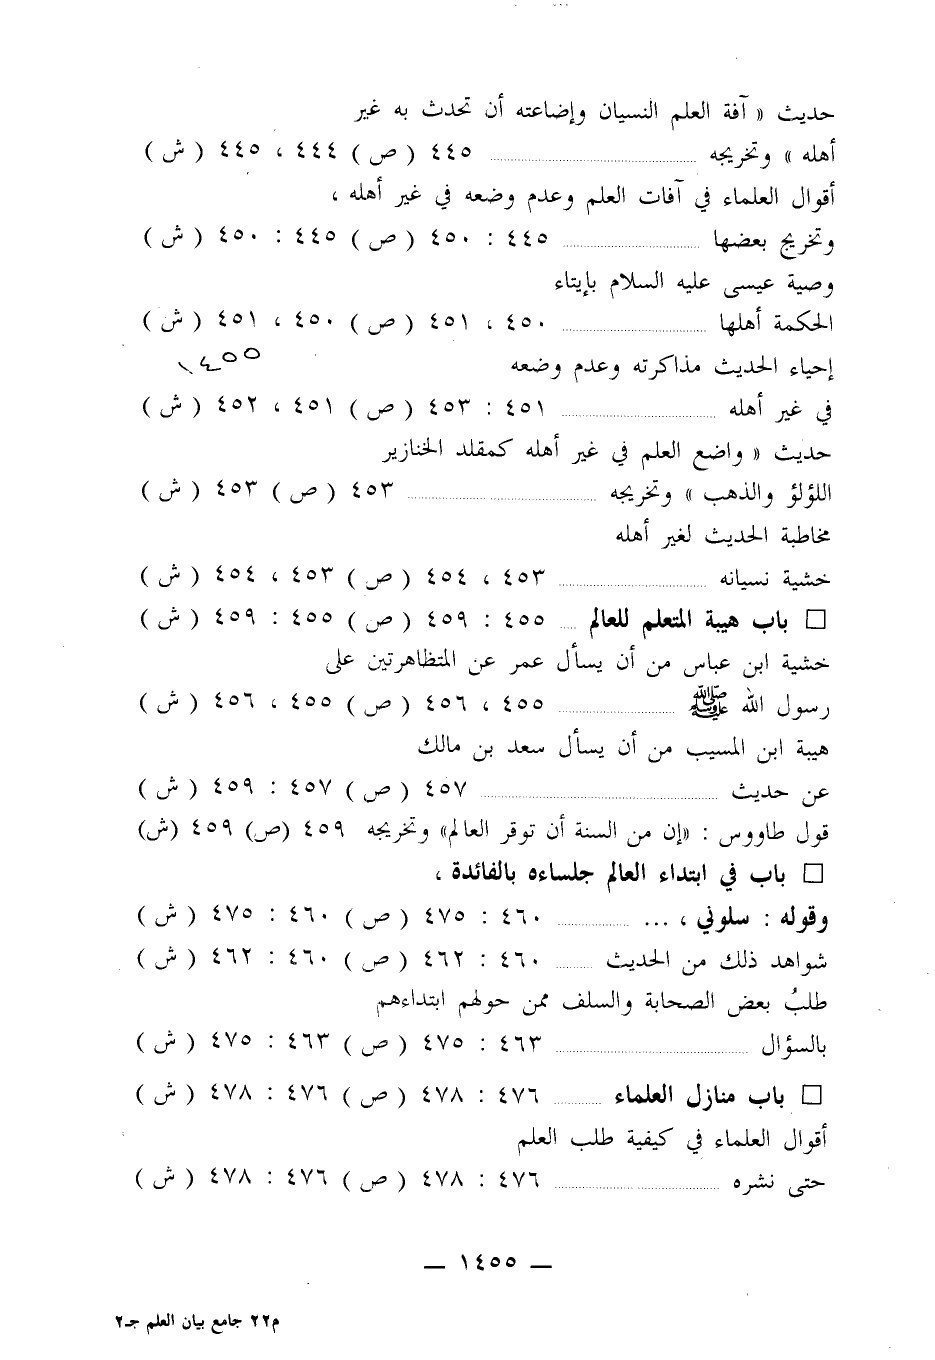 حديث « آفة العلم النسيان وإضاعته أن تحدث به غير
أهله » وتخريجه ٤٤٥ ( ص ) ٤٤٤ ، ٤٤٥ ( ش )
أقوال العلماء في آفات العلم وعدم وضعه في غير أهله ،
وتخريج بعضها ٤٤٥ : ٤٥٠ ( ص ) ٤٤٥ : ٤٥٠ ( ش )
وصية عيسى عليه السلام بإيتاء
الحكمة أهلها ٤٥٠ ، ٤٥١ ( ص ) ٤٥٠ ، ٤٥١ ( ش )
إحياء الحديث مذاكرته وعدم وضعه ١٤٥٥
في غير أهله ٤٥١ : ٤٥٣ ( ص ) ٤٥١ ، ٤٥٢ ( ش )
حديث « واضع العلم في غير أهله كمقلد الخنازير
اللؤلؤ والذهب » وتخريجه ٤٥٣ ( ص ) ٤٥٣ ( ش )
مخاطبة الحديث لغير أهله
خشية نسيانه ٤٥٣ ، ٤٥٤ ( ص ) ٤٥٣ ، ٤٥٤ ( ش )
□ باب هيبة المتعلم للعالم ٤٥٥ : ٤٥٩ ( ص ) ٤٥٥ : ٤٥٩ ( ش )
خشية ابن عباس من أن يسأل عمر عن المتظاهرتين على
رسول الله ﷺ ٤٥٥ ، ٤٥٦ ( ص ) ٤٥٥ ، ٤٥٦ ( ش )
هيبة ابن المسيب من أن يسأل سعد بن مالك
عن حديث ٤٥٧ ( ص ) ٤٥٧ : ٤٥٩ ( ش )
قول طاووس : «إن من السنة أن توقر العالم» وتخريجه ٤٥٩ (ص) ٤٥٩ (ش)
□ باب في ابتداء العالم جلساءه بالفائدة ،
وقوله : سلوني ، ... ٤٦٠ : ٤٧٥ ( ص ) ٤٦٠ : ٤٧٥ ( ش )
شواهد ذلك من الحديث ٤٦٠ : ٤٦٢ ( ص ) ٤٦٠ : ٤٦٢ ( ش )
طلبُ بعض الصحابة والسلف ممن حولهم ابتداءهم
بالسؤال ٤٦٣ : ٤٧٥ ( ص ) ٤٦٣ : ٤٧٥ ( ش )
□ باب منازل العلماء ٤٧٦ : ٤٧٨ ( ص ) ٤٧٦ : ٤٧٨ ( ش )
أقوال العلماء في كيفية طلب العلم
حتى نشره ٤٧٦ : ٤٧٨ ( ص ) ٤٧٦ : ٤٧٨ ( ش )
— ١٤٥٥ —
م٢٢ جامع بيان العلم جـ٢